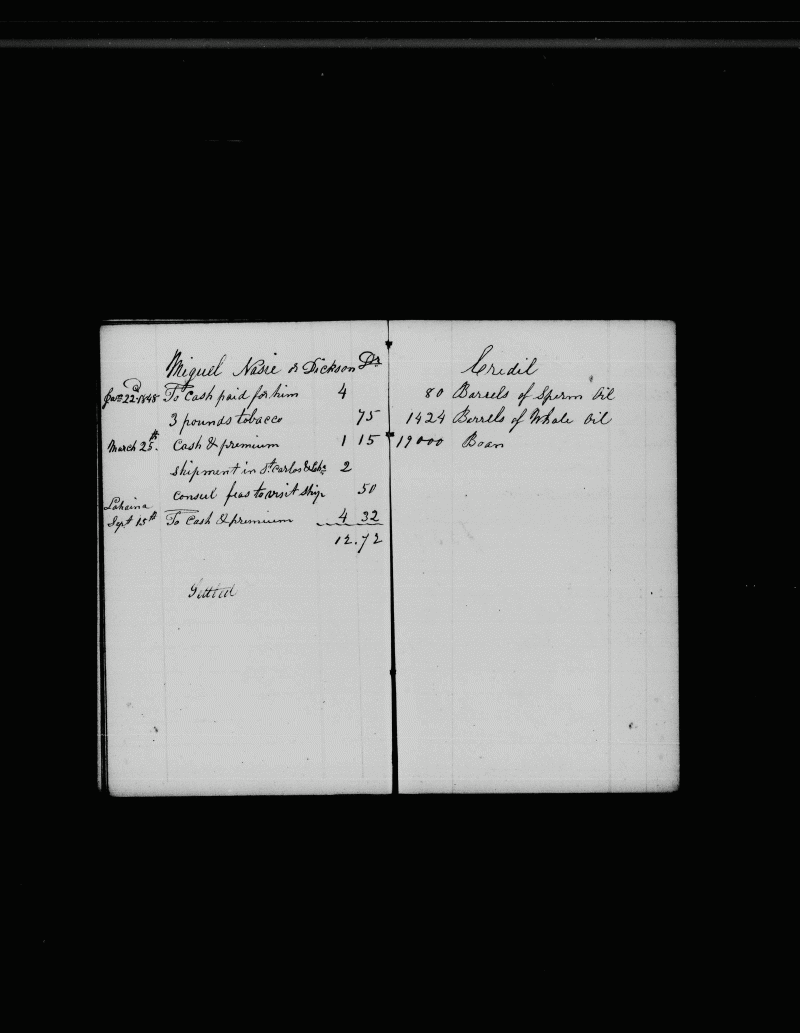 Miguel Nasie or Dickson Dr
22d 1848 To Cash paid for him 4
3 pounds tobacco 75
March 25th. Cash & premium 1 15
shipment in St. Carlos 2
consul feas to visit ship 50
Lahaina
Sept 15th To Cash & premium 4 32
12.72
Settled
Credit
80 Barrels of Sperm Oil
1424 Barrels of Whale Oil
19000 Boan